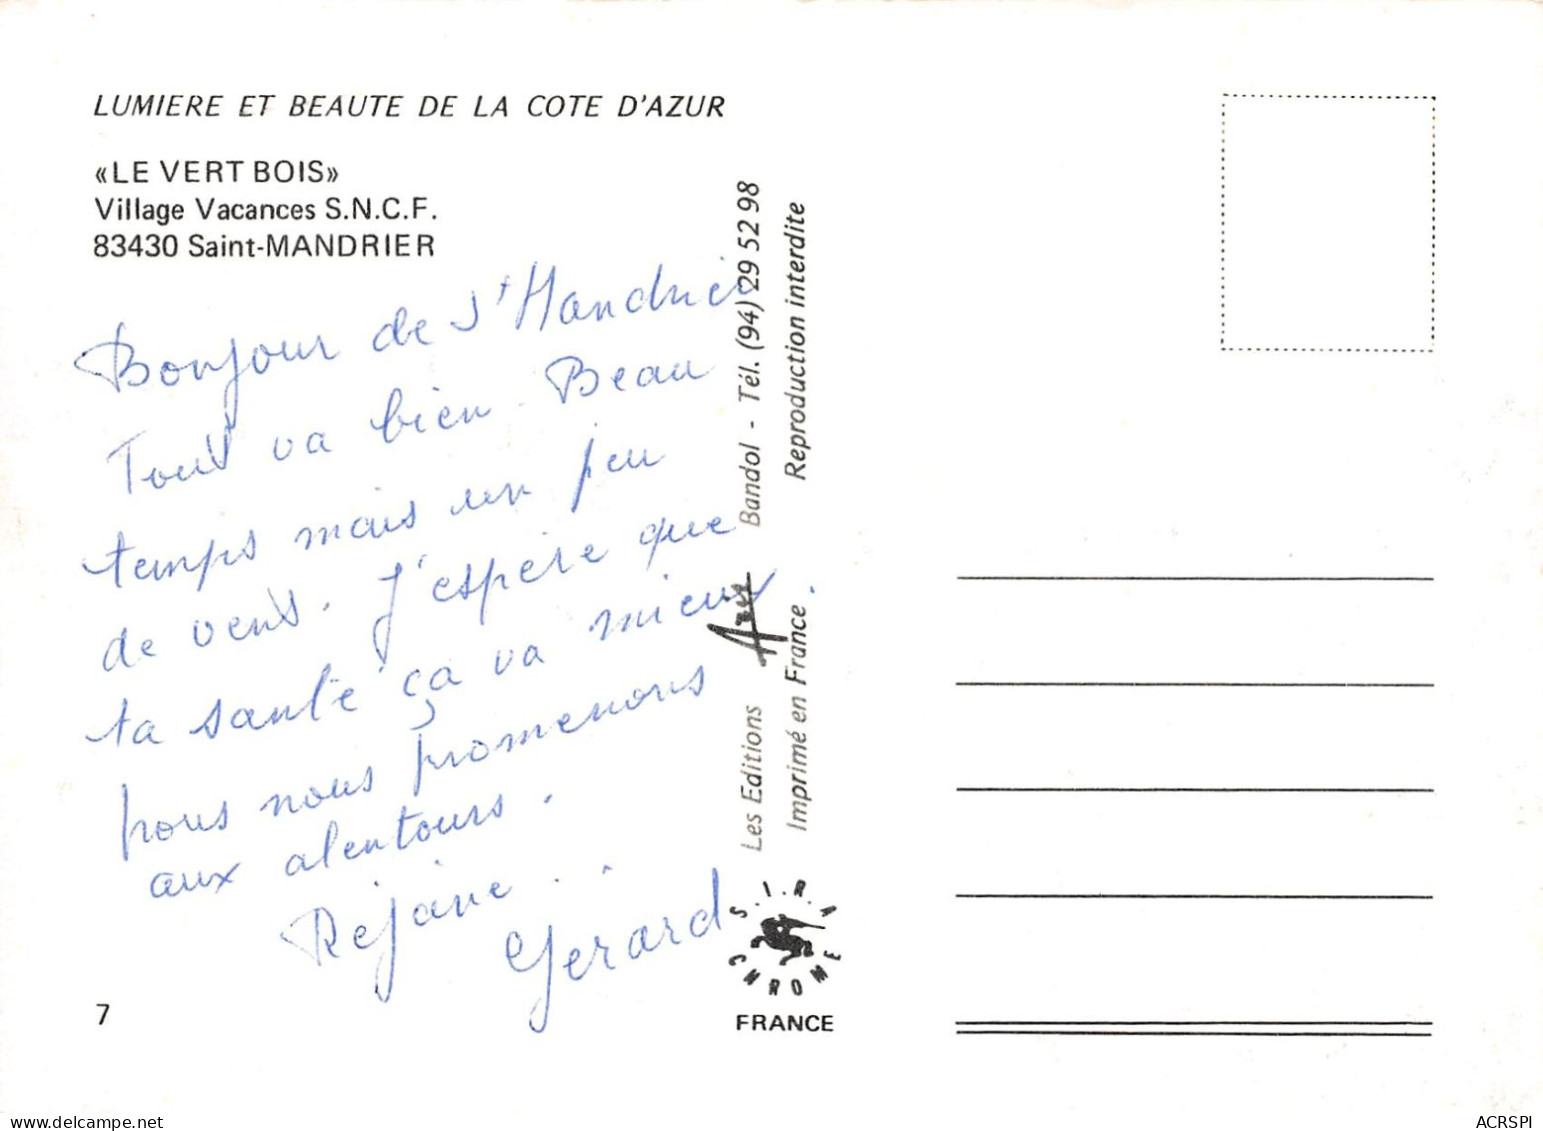 LUMIERE ET BEAUTE DE LA COTE D'AZUR
«LE VERT BOIS»
Village Vacances S.N.C.F.
83430 Saint-MANDRIER
Bonjour de St Mandrier
Tout va bien. Beau
temps mais un peu
de vent. J'espère que
ta santé ça va mieux.
nous nous promenons
aux alentours.
Réjane..
Gérard
7
Les Editions Azur Bandol - Tél. (94) 29 52 98
Imprimé en France Reproduction interdite
S.I.R.A
CHROME
FRANCE
delcampe.net
ACRSPI